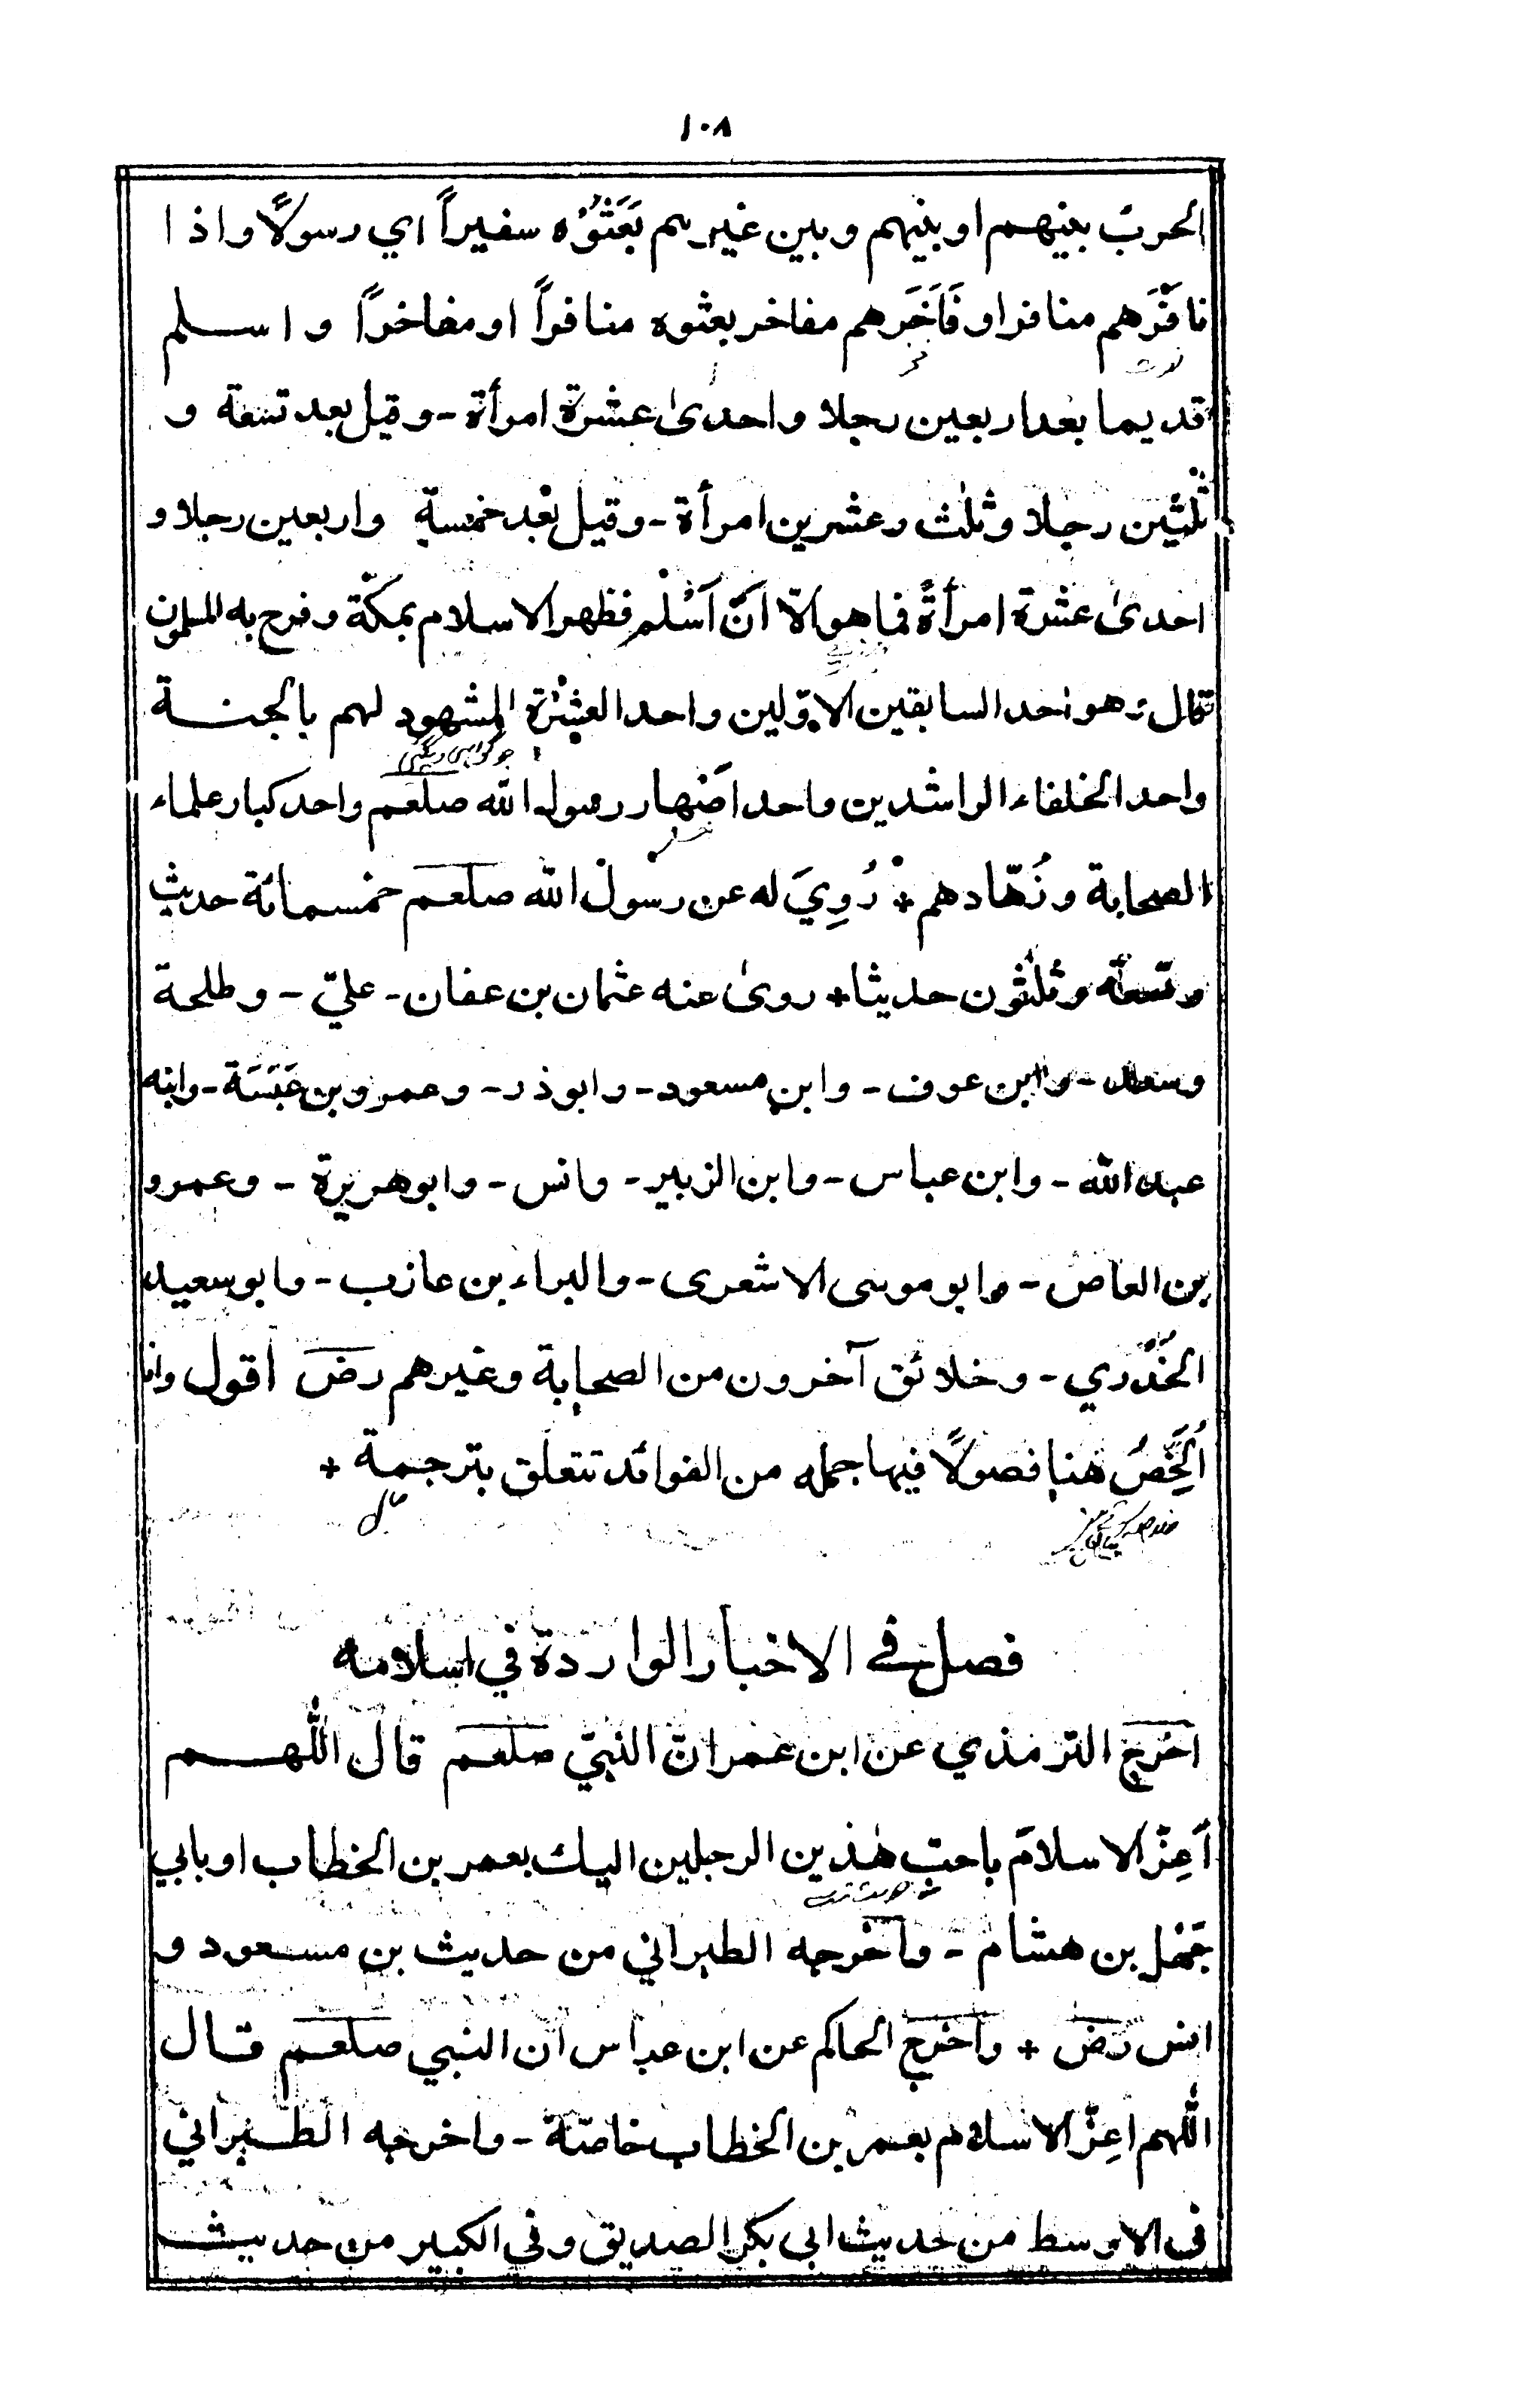 ١٠٨
الحربَ بينهم او بينهم وبين غيرهم بَعَثُوْه سفيراً اي رسولًا واذا
نافَرَهم منافر او فَاخَرَهم مفاخر بعثوه منافراً او مفاخراً واسلم
قديما بعد اربعين رجلا واحدىٰ عشرة امرأة - وقيل بعد تسعة و
ثلٰثين رجلا وثلٰث وعشرين امرأة - وقيل بعد خمسةٍ واربعين رجلا و
احدىٰ عشرة امرأةً فما هو الّا انْ اَسْلم فظهر الاسلام بمكّة وفرح به المسلمون
قال وهو احد السابقين الاوّلين واحد العشرة المشهود لهم بالجنة
واحد الخلفاء الراشدين واحد اصْهار رسول الله صلعم واحد كبار علماء
الصحابة وزُهّادهم + رُوِيَ له عن رسول الله صلعم خمسمائة حديث
وتسعة وثلٰثون حديثا + روىٰ عنه عثمان بن عفان - عليّ - وطلحة
وسعد - وابن عوف - وابن مسعود - وابوذر - وعمرو بن عَبَسَة - وابنه
عبد الله - وابن عباس - وابن الزبير - وانس - وابوهريرة - وعمرو
بن العاص - وابو موسى الاشعرى - والبراء بن عازب - وابو سعيد
الخُدْري - وخلائق آخرون من الصحابة وغيرهم رضَ اقول وانا
اُلَخِّصُ هنا فصولًا فيها جمله من الفوائد تتعلق بترجمة +
فصل في الاخبار الواردة في اسلامه
اخرج الترمذي عن ابن عمر انّ النبيّ صلعم قال اللّٰهم
اَعِزّ الاسلامَ باحبّ هٰذين الرجلين اليك بعمر بن الخطاب او بابي
جَهْل بن هشام - واخرجه الطبراني من حديث بن مسعود و
انس رضَ + واخرج الحاكم عن ابن عباس ان النبي صلعم قال
اللّٰهم اعِزّ الاسلام بعمر بن الخطاب خاصّة - واخرجه الطبراني
في الاوسط من حديث ابى بكر الصديق وفي الكبير من حديث